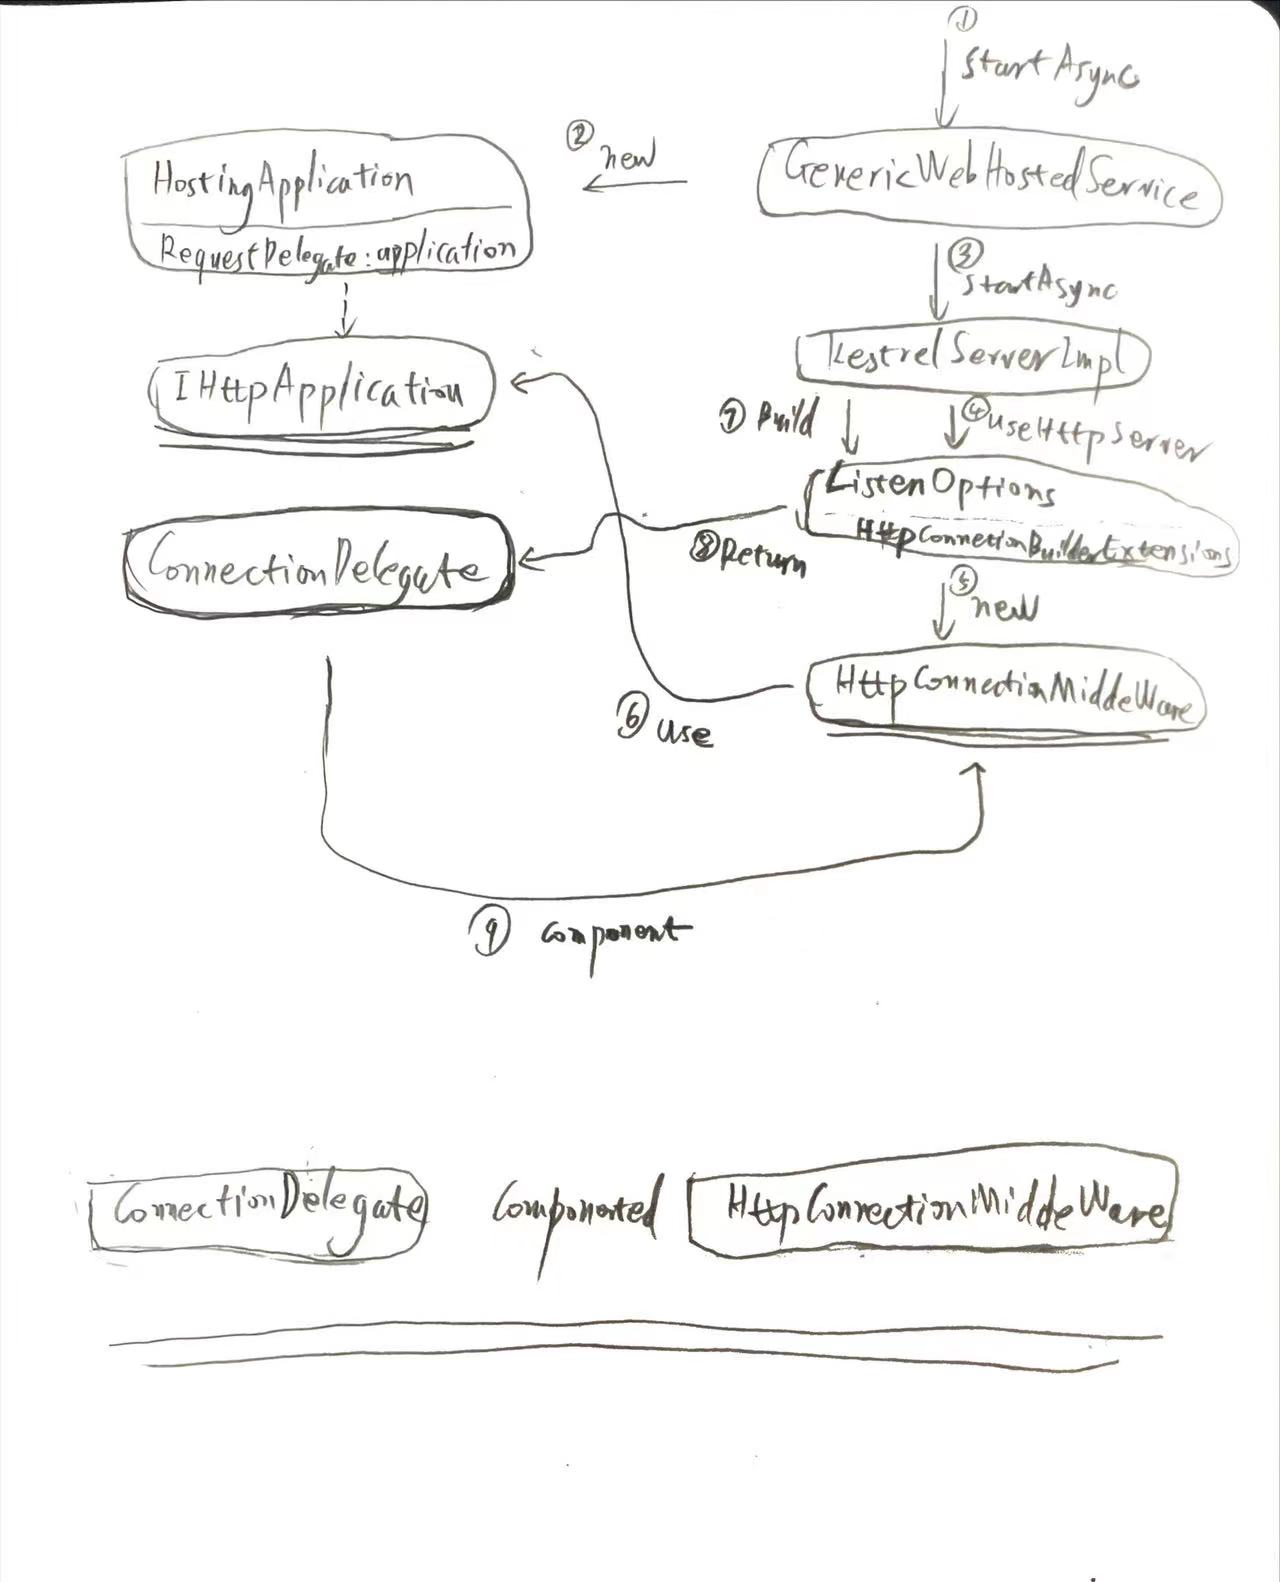 ①
StartAsync
② new
HostingApplication
GenericWebHostedService
RequestDelegate:application
③
StartAsync
KestrelServerImpl
IHttpApplication
⑦ Build
④ UseHttpServer
ListenOptions
HttpConnetionBuilderExtensions
⑧ Return
ConnectionDelegate
⑤ new
HttpConnectionMiddeWare
⑥ Use
⑨ Component
ConnectionDelegate Componented HttpConnectionMiddeWare